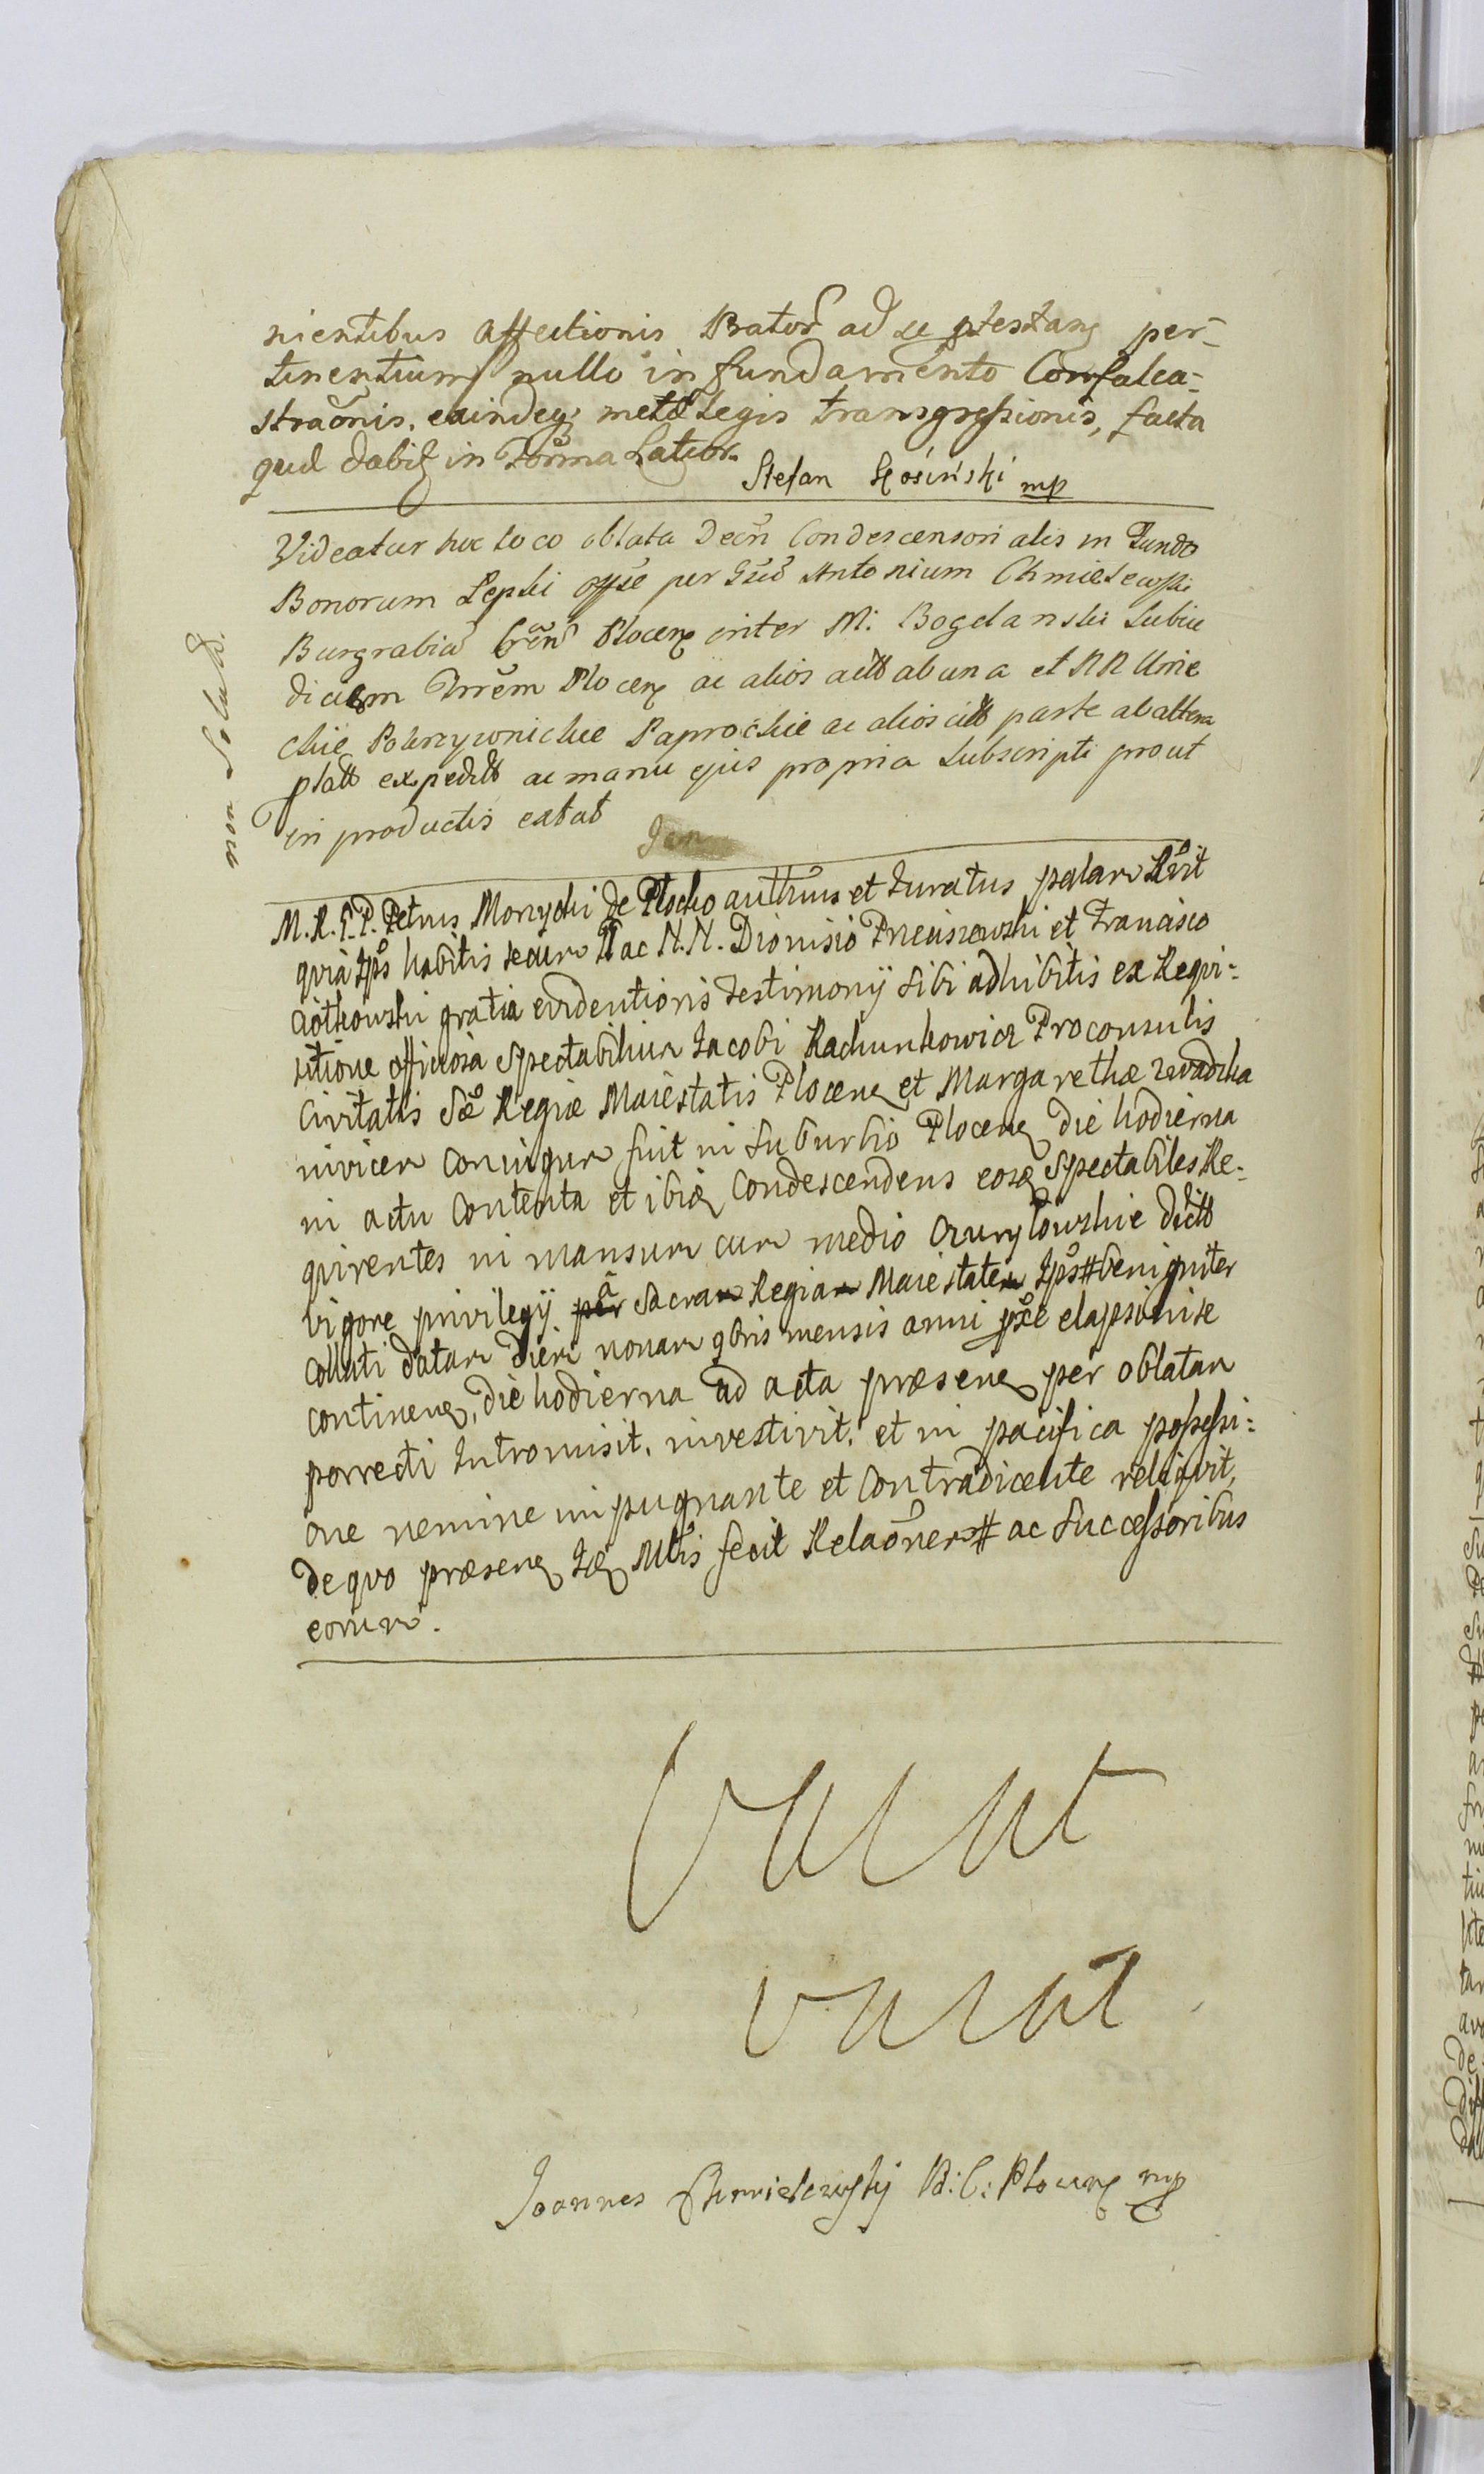 nientibus affectionis Prator̄ ad se ptestanȩ per-
tinentium nullo in fundamento Confalca-
straonis. eaindeq; metæ Legis transgressionis, facta
qud dabit in Forma Latior.
Stefan Kosinski mp
Videatur hoc loco oblata Decři Condescensorialis in Fundo
Bonorum Lepki offse per Gsũ Antonium Chmielewski
Burgrabiũ Crěn Plocenȩ inter M: Bogdanski Subiu
dicem Trrem Plocenȩ ac alios actt ab una et NN
chie Pokrzywnickie Paprockie ac alios citt parte ab altera
platt expeditt ac manu ejus propria Subscripti prout
in productis extat
non solut
M. R. P. P. Petrus Morzycki de Plocko authěus et Juratus palam Rěit
quia Ips̊ habitis secum II ac N. N. Dionisio Pneiszewski et Francisco
Ciotkowski gratia evidentioris testimonij sibi adhibitis ex Requi:
sitione officiosa Spectabilium Jacobi Rachunkowicz Proconsulis
Civitatis Sæ Regiæ Maiestatis Plocenȩ et Margarethæ
invicem Coniugum fuit in Suburbio Plocenȩ die hodierna
in actu Contenta et ibiȩ Condescendens eosȩ Spectabiles Re-
quirentes in mansum cum medio dictt
Vigore privilegij per a Sacram Regiam Maiestatem Ips̊ # benigniter
collati datam diem nonam 9bris mensis anni pse elapsi in se
continenȩ, die hodierna ad acta præsenȩ per oblatam
porrecti Intromisit, investivit, et in pacifica possessi:
one nemine impugnante et Contradicente reliquit,
de quo præsenȩ Iȩ Mtis fecit Relaõnem # ac Successoribus
eorum.
Vacat
vacat
Joannes Chmielewskij B: C: Plocenȩ mp